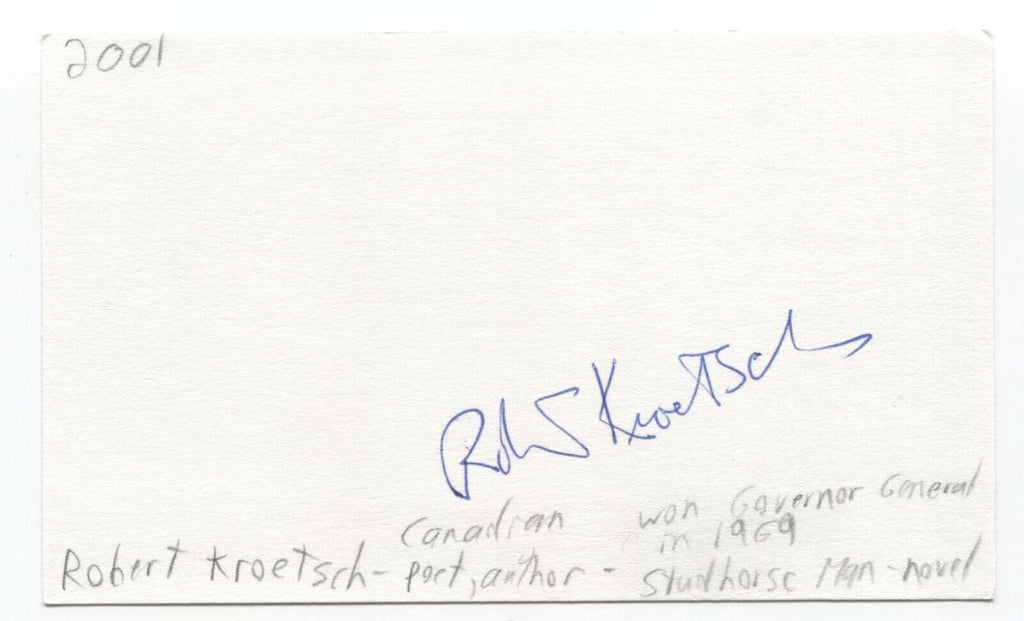 2001
Robert Kroetsch
Canadian won Governor General
in 1969
Robert Kroetsch - poet, author - Studhorse Man - novel